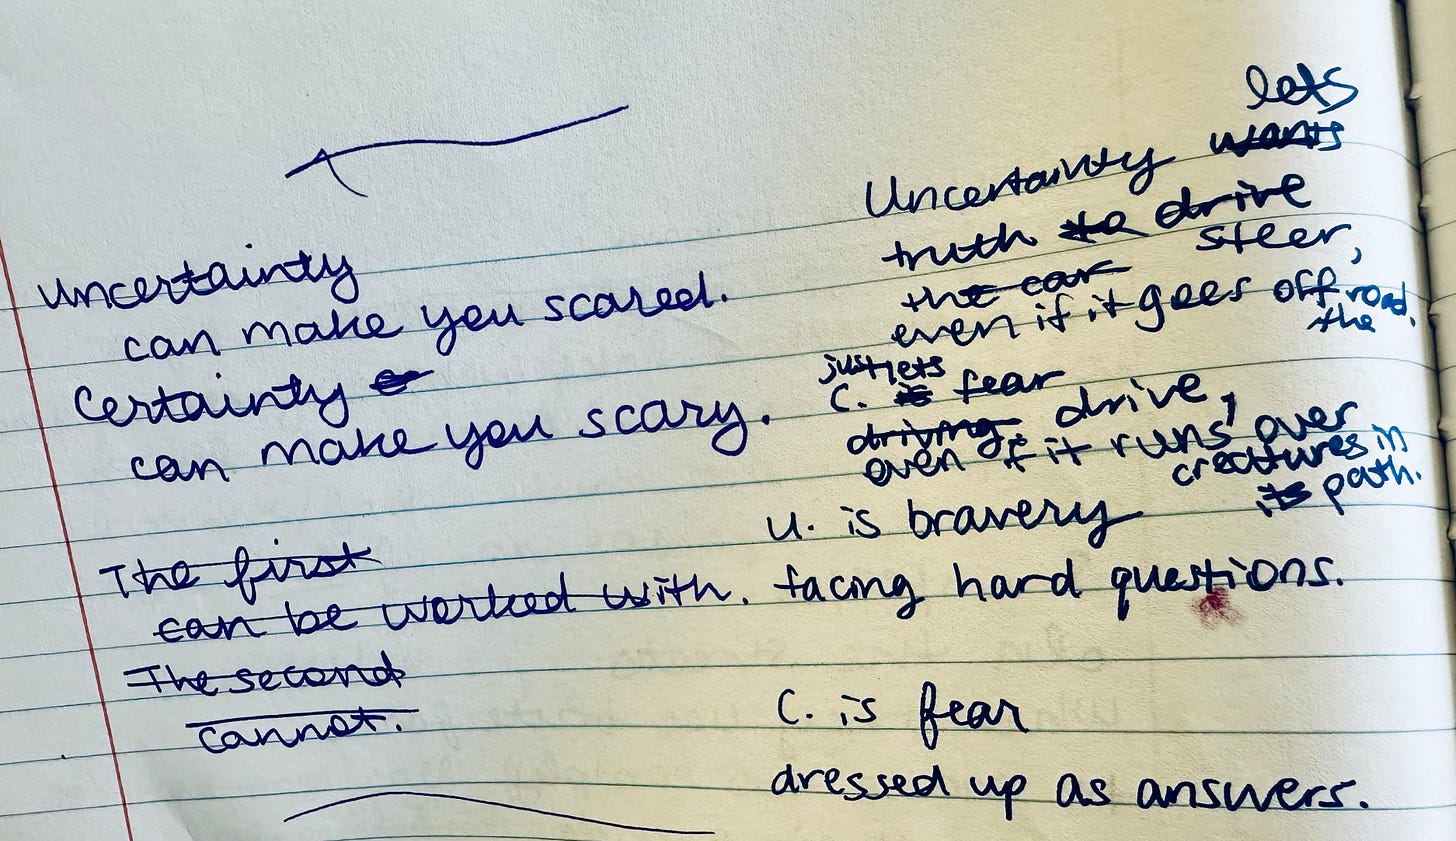 Uncertainty
can make you scared.
Certainty
can make you scary.
The first
can be worked with.
The second
cannot.
lets
Uncertainty wants
truth to drive
steer,
the car
even if it goes off road.
the
just lets
C. is fear
driving, drive,
even if it runs over
creatures in
its path.
U. is bravery
facing hard questions.
C. is fear
dressed up as answers.